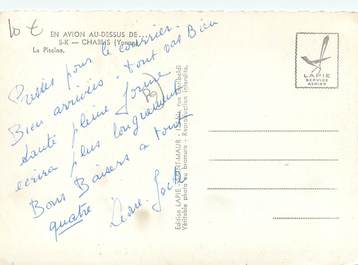 10 €
EN AVION AU-DESSUS DE...
5-K — CHABLIS (Yonne)
La Piscine.
Pressés pour le courrier.
Bien arrivées - tout va Bien
Santé pleine forme
(89)
écrira plus longuement
Bons Baisers à tous
quatre
LAPIE
SERVICE
AERIEN
Edition LAPIE, SAINT-MAUR
Véritable photo au bromure - Reproduction interdite.